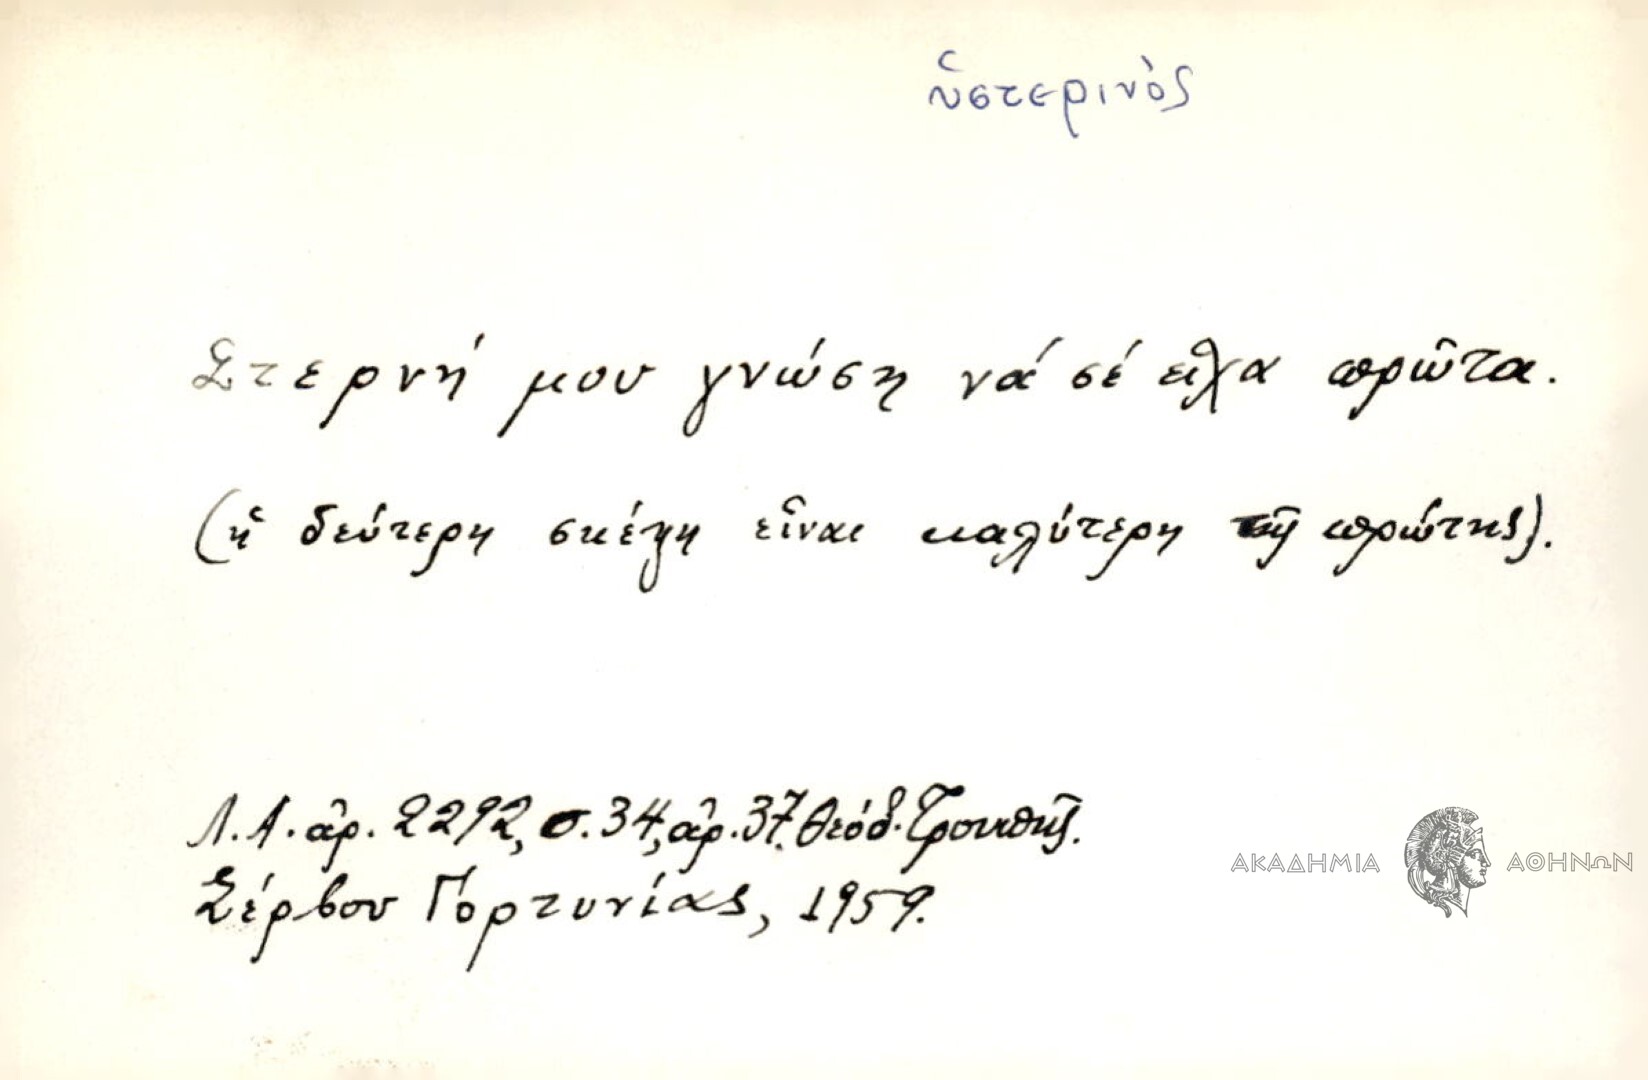 ὑστερινὸς
Στερνή μου γνώση νά σέ εἶχα πρῶτα.
(ἡ δεύτερη σκέψη εἶναι καλύτερη τῆς πρώτης).
Λ.Α. ἀρ. 2292, σ. 34, ἀρ. 37. Θεόδ. Τρουπῆς.
Σέρβου Γορτυνίας, 1959.
ΑΚΑΔΗΜΙΑ ΑΘΗΝΩΝ